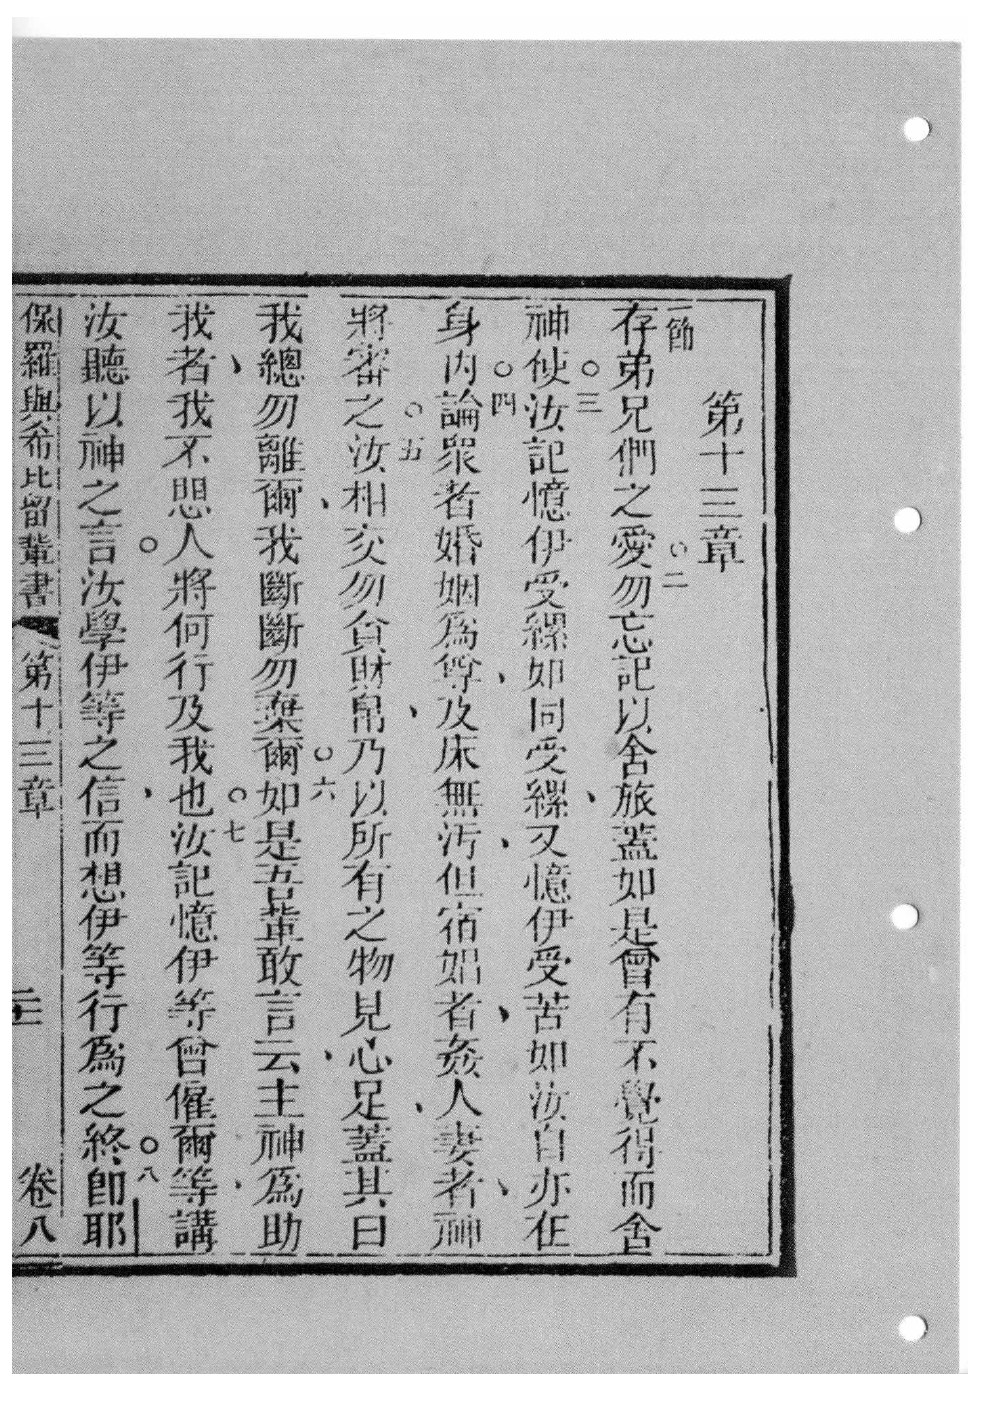 第十三章
一節
存弟兄們之愛勿忘記以舍旅蓋如是曾有不覺得而舍
○二
神使汝記憶伊受縲如同受縲又憶伊受苦如汝自亦在
○三
身內論衆者婚姻爲尊及床無污但宿娼者姦人妻者神
○四
將審之汝相交勿貪財帛乃以所有之物見心足蓋其曰
○五
我總勿離爾我斷斷勿棄爾如是吾輩敢言云主神爲助
○六
我者我不想人將何行及我也汝記憶伊等曾僱爾等講
○七
汝聽以神之言汝學伊等之信而想伊等行爲之終即耶
○八
保羅與希比留輩書 第十三章 卷八